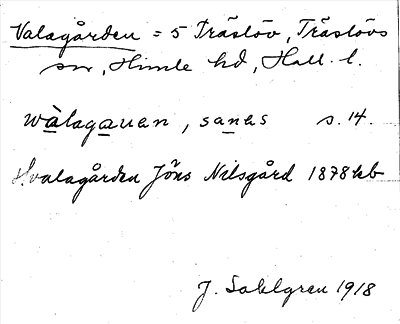 Valagården = 5 Träslöv, Träslövs
sn, Himle hd, Hall. l.
wàlagauan, sanas s. 14.
Hvalagården Jöns Nilsgård 1878 kb
J. Sahlgren 1918